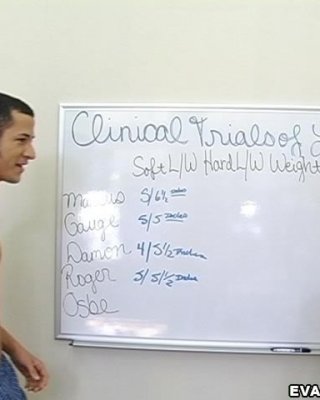 Clinical Trials of
Soft L/W Hard L/W Weight
Marcus 5/6½
Gauge 5/5 Inches
Damon 4/5½ Inches
Roger 5/5½ Inches
Osbe
EVA